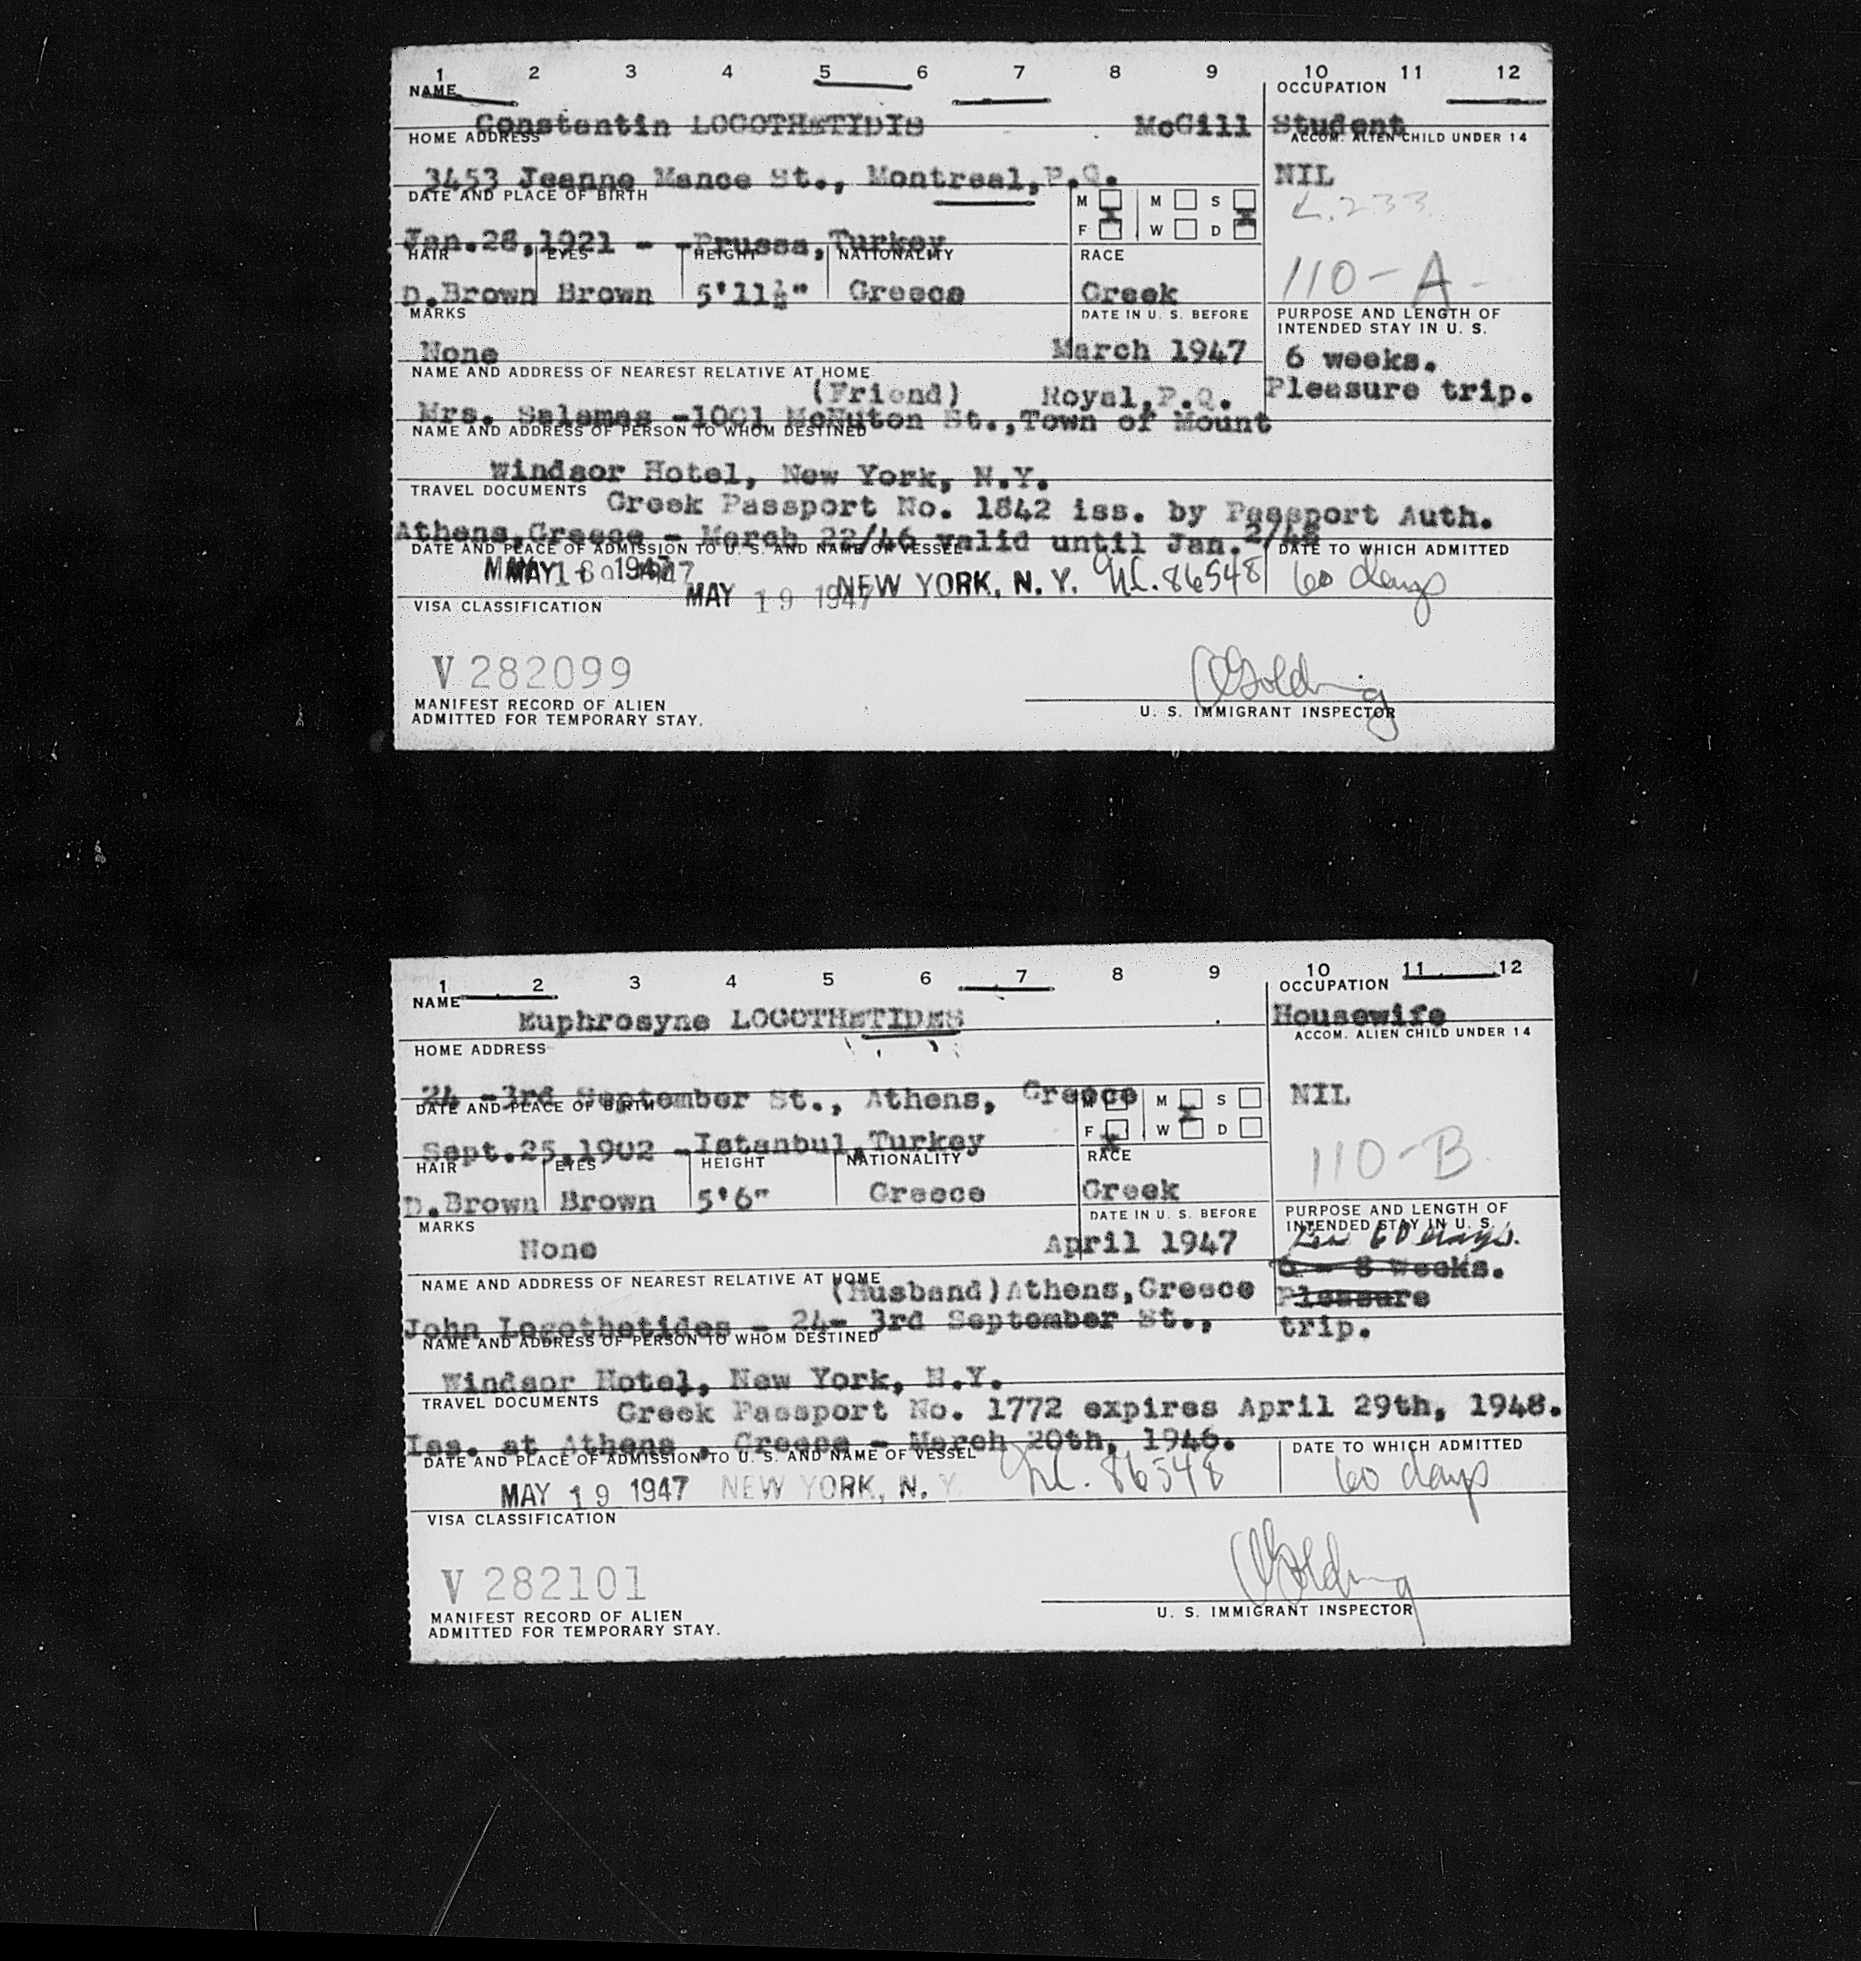 1 2 3 4 5 6 7 8 9 10 11 12
NAME OCCUPATION
Constantin LOGOTHETIDIS McGill Student
HOME ADDRESS ACCOM. ALIEN CHILD UNDER 14
3453 Jeanne Mance St., Montreal, P.Q. NIL
DATE AND PLACE OF BIRTH M M S
F W D
Jan.28,1921 - -Prussa, Turkey
HAIR EYES HEIGHT NATIONALITY RACE
110-A-
D.Brown Brown 5'11½" Greece Greek
MARKS DATE IN U. S. BEFORE PURPOSE AND LENGTH OF
INTENDED STAY IN U. S.
None March 1947 6 weeks.
NAME AND ADDRESS OF NEAREST RELATIVE AT HOME
(Friend) Royal,P.Q. Pleasure trip.
Mrs. Salamas -1001 McNuton St.,Town of Mount
NAME AND ADDRESS OF PERSON TO WHOM DESTINED
Windsor Hotel, New York, N.Y.
TRAVEL DOCUMENTS Greek Passport No. 1842 iss. by Passport Auth.
Athens,Greece - March 22/46 valid until Jan. 2/48
DATE AND PLACE OF ADMISSION TO U. S. AND NAME OF VESSEL DATE TO WHICH ADMITTED
MAY 19 1947 NEW YORK, N. Y. 86548 60 days
VISA CLASSIFICATION
V 282099
Golding
MANIFEST RECORD OF ALIEN
ADMITTED FOR TEMPORARY STAY.
U. S. IMMIGRANT INSPECTOR
1 2 3 4 5 6 7 8 9 10 11 12
NAME OCCUPATION
Euphrosyne LOGOTHETIDES Housewife
HOME ADDRESS ACCOM. ALIEN CHILD UNDER 14
24 -3rd September St., Athens, Greece NIL
DATE AND PLACE OF BIRTH M M S
F W D
Sept.25,1902 -Istanbul,Turkey
110-B
HAIR EYES HEIGHT NATIONALITY RACE
D.Brown Brown 5'6" Greece Greek
MARKS DATE IN U. S. BEFORE PURPOSE AND LENGTH OF
INTENDED STAY IN U. S.
None April 1947 60 days.
6 - 8 Weeks.
NAME AND ADDRESS OF NEAREST RELATIVE AT HOME
(Husband)Athens,Greece Pleasure
John Logothetides - 24- 3rd September St., trip.
NAME AND ADDRESS OF PERSON TO WHOM DESTINED
Windsor Hotel, New York, N.Y.
TRAVEL DOCUMENTS Greek Passport No. 1772 expires April 29th, 1948.
Iss. at Athens , Greece - March 20th, 1946.
DATE AND PLACE OF ADMISSION TO U. S. AND NAME OF VESSEL DATE TO WHICH ADMITTED
MAY 19 1947 NEW YORK, N. Y. 86548 60 days
VISA CLASSIFICATION
V 282101
Golding
MANIFEST RECORD OF ALIEN
ADMITTED FOR TEMPORARY STAY.
U. S. IMMIGRANT INSPECTOR